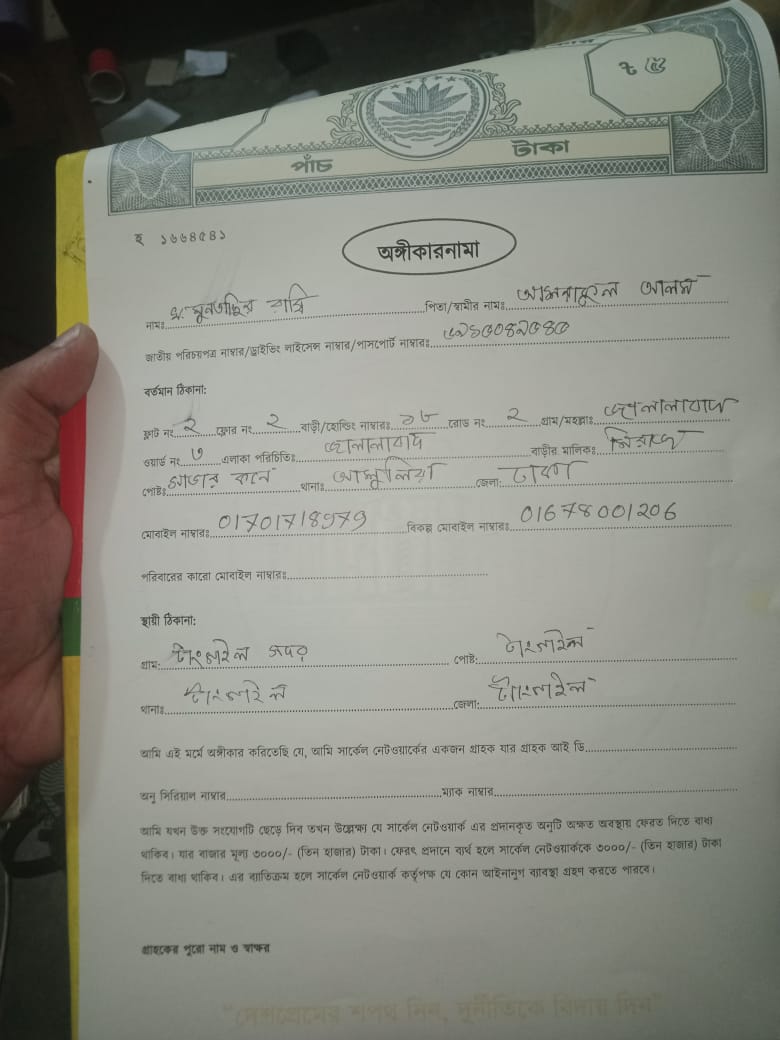 পাঁচ টাকা
হ ১৬৬৪৫৪১
অঙ্গীকারনামা
নামঃ পিতা/স্বামীর নামঃ আলম
জাতীয় পরিচয়পত্র নাম্বার/ড্রাইভিং লাইসেন্স নাম্বার/পাসপোর্ট নাম্বারঃ
বর্তমান ঠিকানা:
ফ্লাট নং ২ ফ্লোর নং ২ বাড়ী/হোল্ডিং নাম্বারঃ রোড নং ২ গ্রাম/মহল্লাঃ জালালাবাদ
ওয়ার্ড নং ৩ এলাকা পরিচিতিঃ জালালাবাদ বাড়ীর মালিকঃ সিরাজ
পোষ্টঃ থানাঃ আশুলিয়া জেলা: ঢাকা
মোবাইল নাম্বারঃ 01701718979 বিকল্প মোবাইল নাম্বারঃ 01678001206
পরিবারের কারো মোবাইল নাম্বারঃ
স্থায়ী ঠিকানা:
গ্রাম: টাংগাইল সদর পোষ্ট: টাংগাইল
থানাঃ টাংগাইল জেলা: টাংগাইল
আমি এই মর্মে অঙ্গীকার করিতেছি যে, আমি সার্কেল নেটওয়ার্কের একজন গ্রাহক যার গ্রাহক আই ডি
অনু সিরিয়াল নাম্বার ম্যাক নাম্বার
আমি যখন উক্ত সংযোগটি ছেড়ে দিব তখন উল্লেক্ষ্য যে সার্কেল নেটওয়ার্ক এর প্রদানকৃত অনুটি অক্ষত অবস্থায় ফেরত দিতে বাধ্য
থাকিব। যার বাজার মূল্য ৩০০০/- (তিন হাজার) টাকা। ফেরৎ প্রদানে ব্যর্থ হলে সার্কেল নেটওয়ার্ককে ৩০০০/- (তিন হাজার) টাকা
দিতে বাধ্য থাকিব। এর ব্যতিক্রম হলে সার্কেল নেটওয়ার্ক কর্তৃপক্ষ যে কোন আইনানুগ ব্যবস্থা গ্রহণ করতে পারবে।
গ্রাহকের পুরো নাম ও স্বাক্ষর
"দেশপ্রেমের শপথ নিন, দুর্নীতিকে বিদায় দিন"